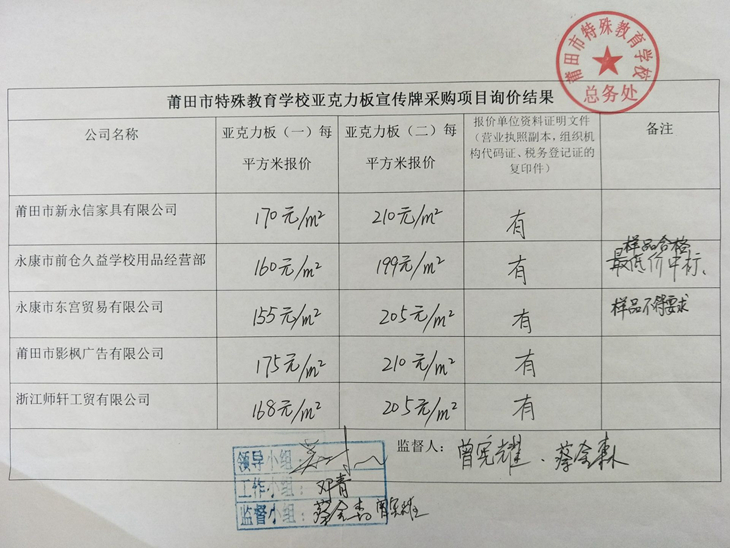 莆田市特殊教育学校
总务处
莆田市特殊教育学校亚克力板宣传牌采购项目询价结果
公司名称
亚克力板（一）每
平方米报价
亚克力板（二）每
平方米报价
报价单位资料证明文件
（营业执照副本，组织机
构代码证、税务登记证的
复印件）
备注
莆田市新永信家具有限公司 170元/m² 210元/m² 有
永康市前仓久益学校用品经营部 160元/m² 199元/m² 有
样品合格
最低价中标、
永康市东宫贸易有限公司 155元/m² 205元/m² 有 样品不符要求
莆田市影枫广告有限公司 175元/m² 210元/m² 有
浙江师轩工贸有限公司 168元/m² 205元/m² 有
监督人：曾宪耀、蔡金森
领导小组：
工作小组：邓青
监督小组：蔡金森 曾宪耀